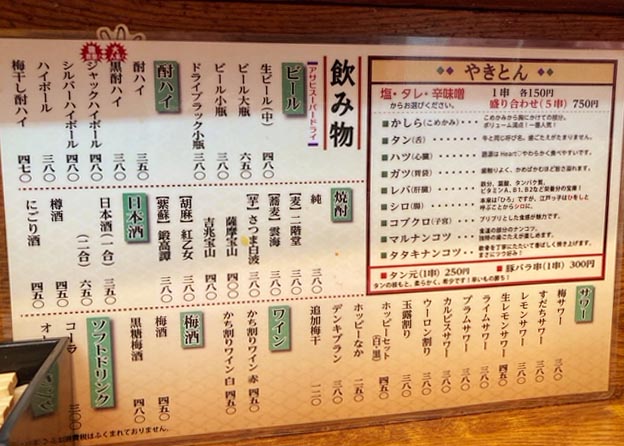 飲み物
アサヒスーパードライ
ビール
生ビール(中) 四八〇
ビール大瓶 六五〇
ビール小瓶 三八〇
ドライブラック小瓶 三八〇
酎ハイ
酎ハイ 三五〇
黒酎ハイ 三八〇
ジャックハイボール 四八〇
シルバーハイボール
ハイボール 三八〇
梅干し酎ハイ 四七〇
焼酎
純 三八〇
[麦] 二階堂 三八〇
[蕎麦] 雲海 三八〇
[芋] さつま白波 三八〇
薩摩宝山 四五〇
吉兆宝山 四五〇
[胡麻] 紅乙女 三八〇
[紫蘇] 鍛高譚 三八〇
日本酒
日本酒(一合) 三五〇
(二合) 六五〇
樽酒 四五〇
にごり酒 四五〇
やきとん
塩・タレ・辛味噌
からお選びください。
1串 各150円
盛り合わせ(5串) 750円
かしら(こめかみ)・・・こめかみから胸にかけての部分。
ボリューム満点!一番人気!
タン(舌)・・・牛と同じ呼び名。歯ごたえがたまりません。
ハツ(心臓)・・・語源はHeart♡やわらかく食べやすいです。
ガツ(胃袋)・・・歯触りよく、かめばかむほど旨さ溢れます。
レバ(肝臓)・・・鉄分、葉酸、タンパク質、
ビタミンA、B1、B2など栄養分の宝庫!
シロ(腸)・・・本来は「ひろ」ですが、江戸っ子はひをしと
呼ぶことからシロに。
コブクロ(子宮)・・・プリプリとした食感が魅力です。
マルナンコツ・・・食道の部分のナンコツ。
独特の歯ごたえが楽しめます。
タタキナンコツ・・・軟骨を丁寧にたたいて香ばしく焼き上げます。
まさにつう好み!
タン元(1串) 250円
タンの根もと。柔らかく、希少です!
豚バラ串(1串) 300円
辛いもの勝ち!
サワー
梅サワー 三八〇
すだちサワー 三八〇
レモンサワー 三八〇
生レモンサワー 四五〇
ライムサワー 三八〇
プラムサワー 三八〇
カルピスサワー 三八〇
ウーロン割り 三八〇
玉露割り 三八〇
ホッピーセット(白・黒) 四五〇
ホッピーなか 二五〇
デンキブラン 三八〇
追加梅干 一二〇
ワイン
かち割りワイン 赤 四五〇
かち割りワイン 白 四五〇
梅酒
梅酒 三八〇
黒糖梅酒 四八〇
ソフトドリンク
コーラ 三〇〇